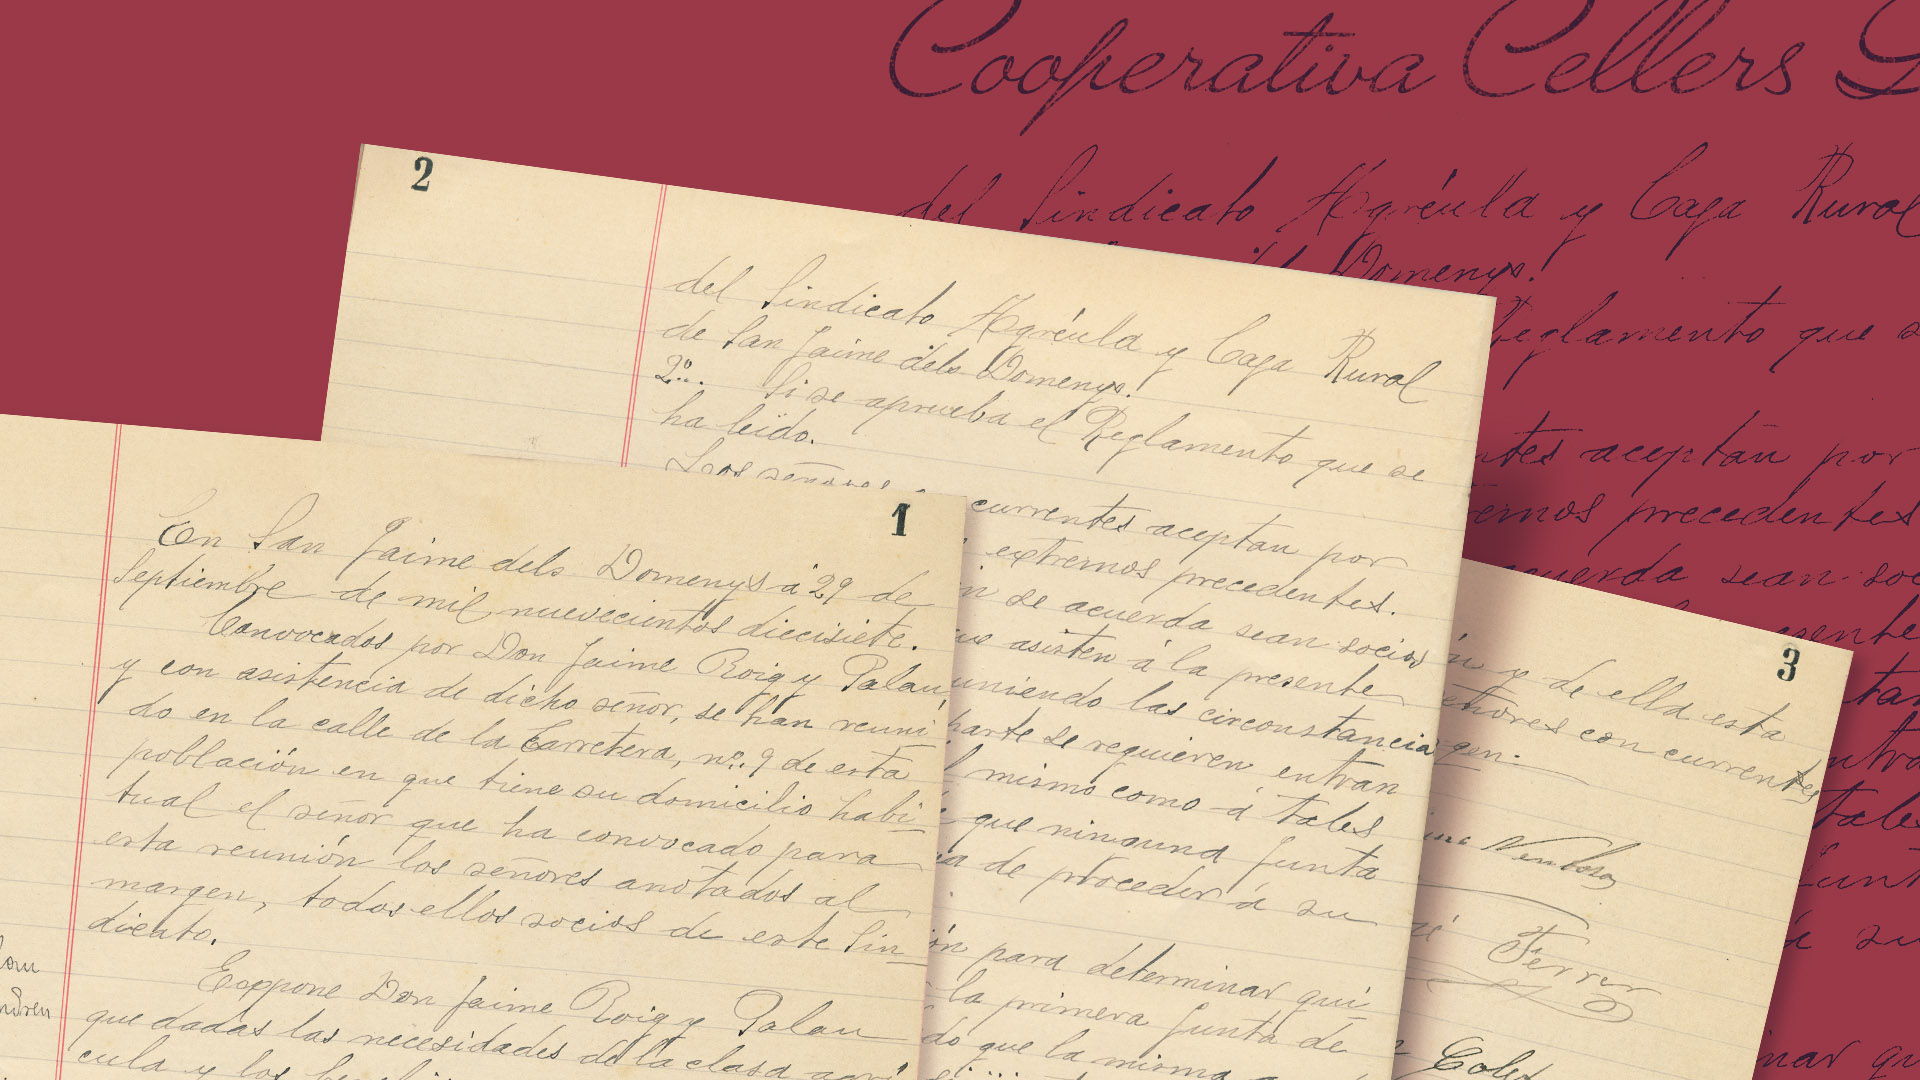 Cooperativa Cellers
del Sindicato Agrícula y Caja Rural
Domenys.
Reglamento que s
ntes aceptan por
ernos precedentes
acuerda sean soc
esente
tan
ntra
tales
Junt
á su
inar qu
2
del Sindicato Agrícula y Caja Rural
de San Jaime dels Domenys.
2º. Si se aprueba el Reglamento que se
ha leído.
Los señores
currentes aceptan por
extremos precedentes.
n se acuerda sean socios
ue asisten á la presente
uniendo las circonstancia
parte se requieren entran
l mismo como á tales
que ninguna Junta
ia de proceder á su
ión para determinar qui-
la primera Junta de
do que la misma
1
En San Jaime dels Domenys á 29 de
Septiembre de mil nuevecientos diecisiete.
Convocados por Don Jaime Roig y Palau,
y con asistencia de dicho señor, se han reuni
do en la calle de la Carretera, nº. 9 de esta
población en que tiene su domicilio habi-
tual el señor que ha convocado para
esta reunión los señores anotados al
margen, todos ellos socios de este Sin
dicato.
Expone Don Jaime Roig y Palau
que dadas las necesidades de la clase agrí
cula y los
3
n y de ella esta
eñores con currentes
gen.
Ventosa
Ferrer
Colet